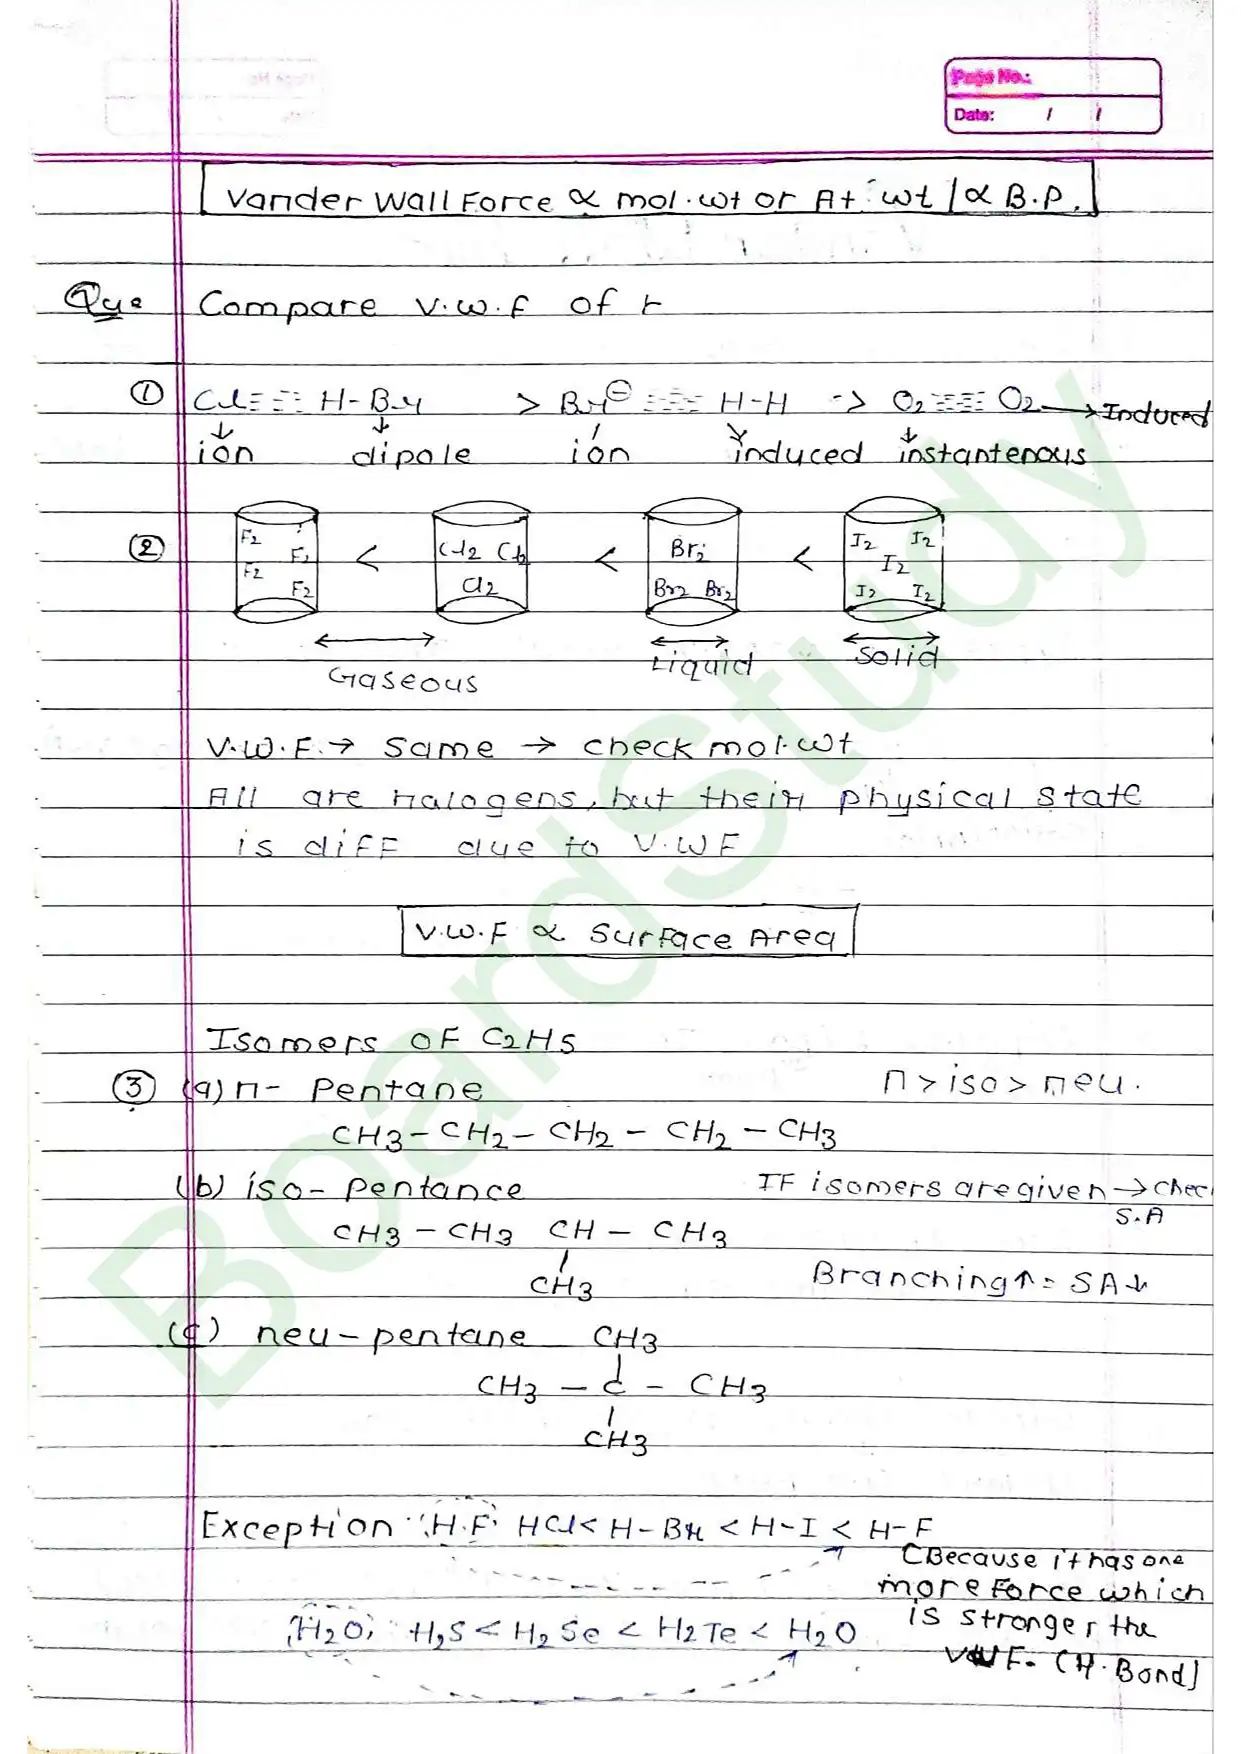 Page No.:
Date: / /
Vander Wall Force ∝ mol.wt or At.wt / ∝ B.P.
Que Compare V.W.F of
① Cl ≡≡ H-Br > Br⊖ ≡≡ H-H -> O2 ≡≡ O2 → Induced
ion dipole ion induced instantenous
② F2 F2 F2 F2 < Cl2 Cl2 Cl2 < Br2 Br2 Br2 < I2 I2 I2 I2 I2
Gaseous Liquid Solid
V.W.F. → Same → check mol.wt
All are halogens, but their physical state
is diff due to V.WF
V.W.F ∝ Surface Area
Isomers of C2H5
③ (a) n- Pentane n > iso > neu.
CH3 - CH2 - CH2 - CH2 - CH3
(b) iso- Pentance IF isomers are given → Chec
S.A
CH3 - CH3 CH - CH3
CH3
Branching ↑ = SA ↓
(c) neu-pentane CH3
CH3 - C - CH3
CH3
Exception H.F HCl < H-Br < H-I < H-F
(Because it has one
more Force which
is stronger the
VWF. (H.Bond)
H2O, H2S < H2Se < H2Te < H2O
BoardStudy